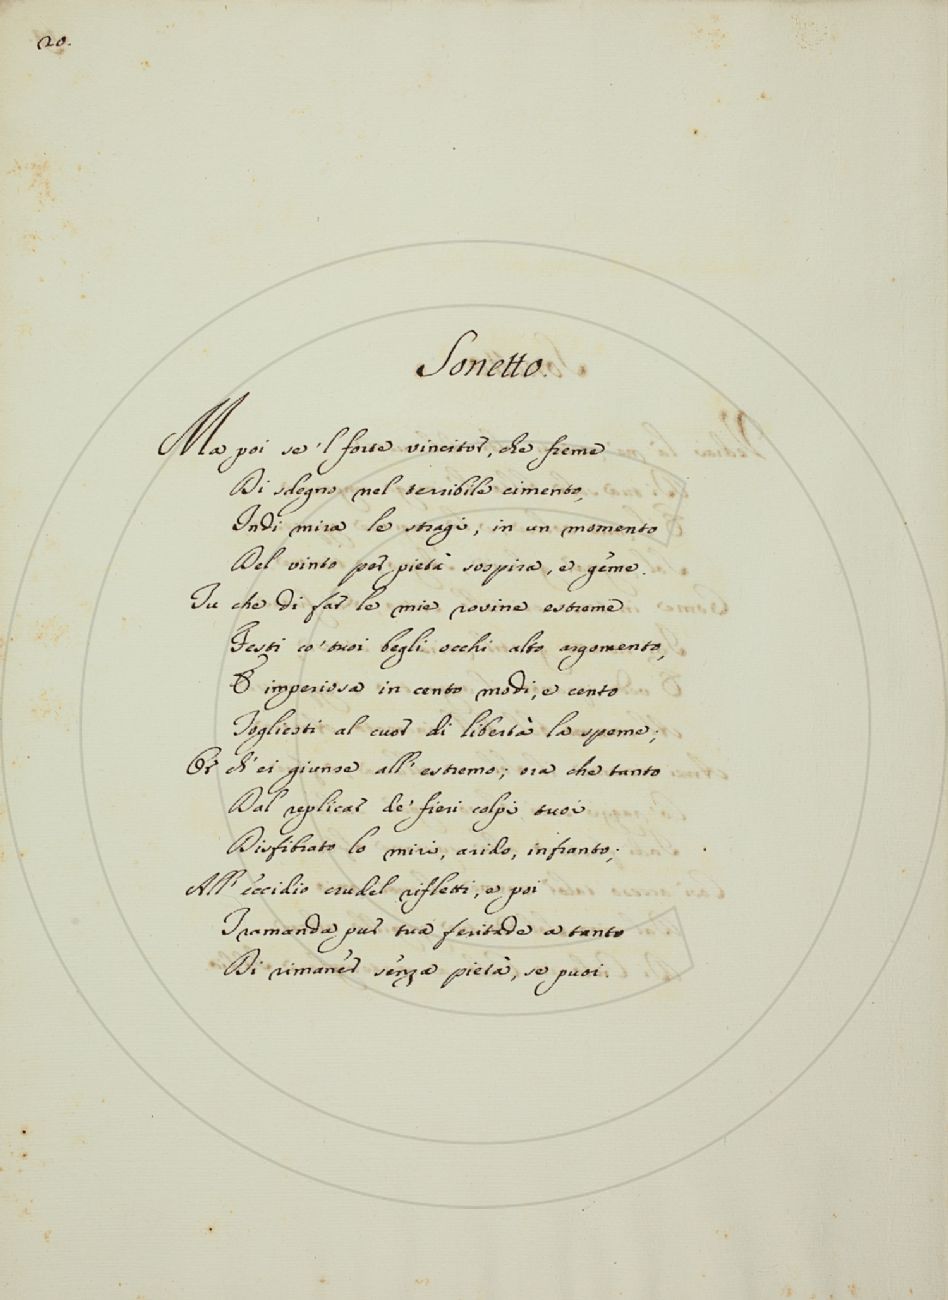 20.
Sonetto.
Ma poi se 'l forte vincitor, che freme
Di sdegno nel terribile cimento,
Indi mira le stragi, in un momento
Del vinto per pietà sospira, e geme.
Tu che di far le mie rovine estreme
Festi co' tuoi begli occhi alto argomento,
E imperiosa in cento modi, e cento
Togliesti al cuor di libertà la speme;
Or ch' ei giunse all' estremo; ora che tanto
Dal replicar de' fieri colpi tuoi
Disfibrato lo miri, arido, infranto;
All' eccidio crudel rifletti, e poi
Tramanda pur tua feritade a tanto
Di rimaner senza pietà, se puoi.